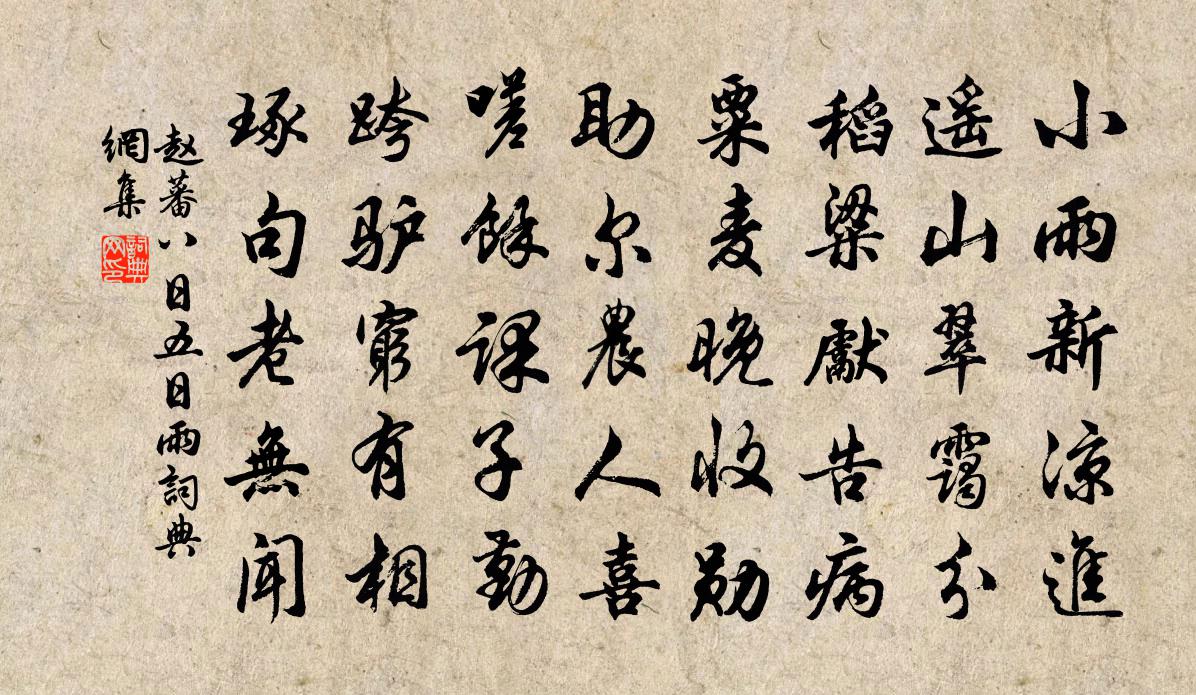 小雨新凉進
遥山翠靄分
稻粱獻告病
粟麦晚收勋
助尔農人喜
嗟餘課子勤
跨驴窮有相
琢句老無聞
赵蕃八日五日雨詞典
網集
詞典网印